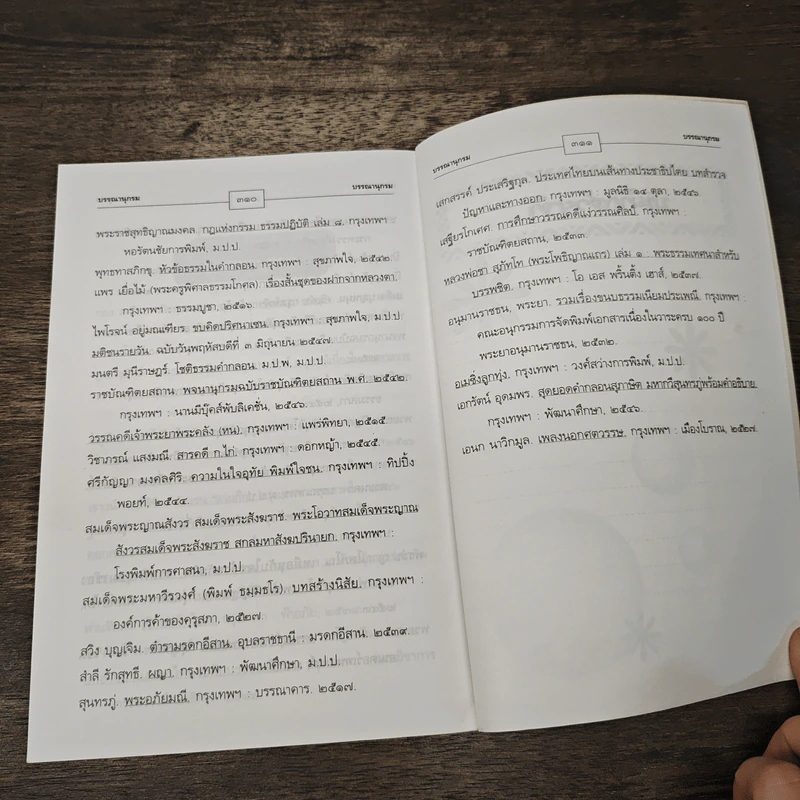 บรรณานุกรม ๓๑๐ บรรณานุกรม
พระราชสุทธิญาณมงคล. กฎแห่งกรรม ธรรมปฏิบัติ เล่ม ๘. กรุงเทพฯ
หอรัตนชัยการพิมพ์, ม.ป.ป.
พุทธทาสภิกขุ. หัวข้อธรรมในคำกลอน. กรุงเทพฯ : สุขภาพใจ, ๒๕๔๒.
แพร เยื่อไม้ (พระครูพิศาลธรรมโกศล). เรื่องสั้นชุดของฝากจากหลวงตา.
กรุงเทพฯ : ธรรมบูชา, ๒๕๑๖.
ไพโรจน์ อยู่มณเฑียร. ขบคิดปริศนาเซน. กรุงเทพฯ : สุขภาพใจ, ม.ป.ป
มติชนรายวัน. ฉบับวันพฤหัสบดีที่ ๓ มิถุนายน ๒๕๔๗.
มนตรี มุนีราษฎร์. โชติธรรมคำกลอน. ม.ป.พ, ม.ป.ป.
ราชบัณฑิตยสถาน. พจนานุกรมฉบับราชบัณฑิตยสถาน พ.ศ. ๒๕๔๒.
กรุงเทพฯ : นานมีบุ๊คส์พับลิเคชั่น, ๒๕๔๖.
วรรณคดีเจ้าพระยาพระคลัง (หน). กรุงเทพฯ : แพร่พิทยา, ๒๕๑๕.
วิชาภรณ์ แสงมณี. สารคดี ก.ไก่. กรุงเทพฯ : ดอกหญ้า, ๒๕๔๕.
ศรีกัญญา มงคลศิริ. ความในใจอุทัย พิมพ์ใจชน. กรุงเทพฯ : ทิปปิ้ง
พอยท์, ๒๕๔๔.
สมเด็จพระญาณสังวร สมเด็จพระสังฆราช. พระโอวาทสมเด็จพระญาณ
สังวรสมเด็จพระสังฆราช สกลมหาสังฆปรินายก. กรุงเทพฯ :
โรงพิมพ์การศาสนา, ม.ป.ป.
สมเด็จพระมหาวีรวงศ์ (พิมพ์ ธมฺมธโร). บทสร้างนิสัย. กรุงเทพฯ :
องค์การค้าของคุรุสภา, ๒๕๒๗.
สวิง บุญเจิม. ตำรามรดกอีสาน. อุบลราชธานี : มรดกอีสาน. ๒๕๓๙.
สำลี รักสุทธี. ผญา. กรุงเทพฯ : พัฒนาศึกษา, ม.ป.ป.
สุนทรภู่. พระอภัยมณี. กรุงเทพฯ : บรรณาคาร. ๒๕๑๗.
บรรณานุกรม ๓๑๑ บรรณานุกรม
เสกสรรค์ ประเสริฐกุล. ประเทศไทยบนเส้นทางประชาธิปไตย บทสำรวจ
ปัญหาและทางออก. กรุงเทพฯ : มูลนิธิ ๑๔ ตุลา, ๒๕๔๖.
เสฐียรโกเศศ. การศึกษาวรรณคดีแง่วรรณศิลป์. กรุงเทพฯ :
ราชบัณฑิตยสถาน, ๒๕๓๓.
หลวงพ่อชา สุภัทโท (พระโพธิญาณเถร) เล่ม ๑ : พระธรรมเทศนาสำหรับ
บรรพชิต. กรุงเทพฯ : โอ เอส พริ้นติ้ง เฮาส์, ๒๕๓๗.
อนุมานราชธน, พระยา. รวมเรื่องขนบธรรมเนียมประเพณี. กรุงเทพฯ :
คณะอนุกรรมการจัดพิมพ์เอกสารเนื่องในวาระครบ ๑๐๐ ปี
พระยาอนุมานราชธน, ๒๕๓๒.
อเมซิ่งลูกทุ่ง. กรุงเทพฯ : วงศ์สว่างการพิมพ์, ม.ป.ป.
เอกรัตน์ อุดมพร. สุดยอดคำกลอนสุภาษิต มหากวีสุนทรภู่พร้อมคำอธิบาย.
กรุงเทพฯ : พัฒนาศึกษา, ๒๕๔๖.
เอนก นาวิกมูล. เพลงนอกศตวรรษ. กรุงเทพฯ : เมืองโบราณ, ๒๕๒๗.